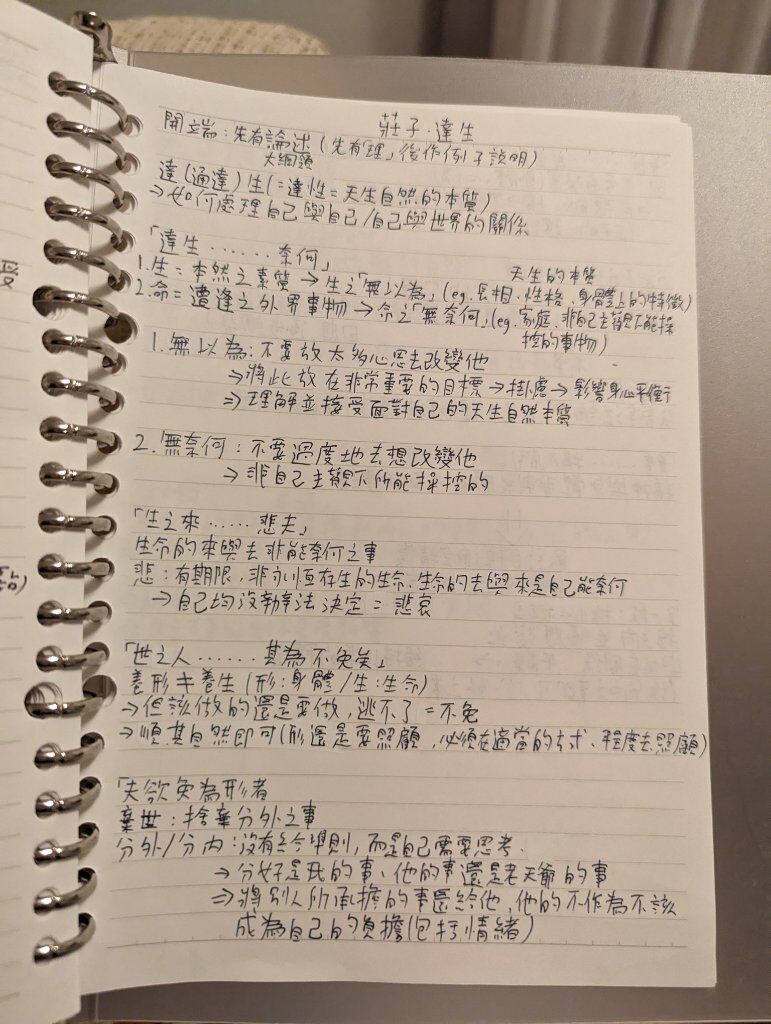 莊子·達生
開端：先有論述（先有「理」後作例子說明）
大綱領
達（通達）生（=達性=天生自然的本質）
→如何處理自己與自己/自己與世界的關係
「達生……奈何」
天生的本質
1.生=本然之素質→生之「無以為」(eg.長相、性格、身體上的特徵)
2.命=遭逢之外界事物→命之「無奈何」(eg.家庭、非自己主觀下能操
控的事物)
1.無以為：不要放太多心思去改變他
→將此放在非常重要的目標→掛慮→影響身心平衡
→理解並接受面對自己的天生自然本質
2.無奈何：不要過度地去想改變他
→非自己主觀下所能操控的
「生之來……悲夫」
生命的來與去非能奈何之事
悲：有期限，非永恆存生的生命、生命的去與來是自己能奈何
→自己均沒辦法決定=悲哀
「世之人……其為不免矣」
養形≠養生（形：身體/生：生命）
→但該做的還是要做，逃不了=不免
→順其自然即可（形還是要照顧，必須在適當的方式、程度去照顧）
「夫欲免為形者
棄世：捨棄分外之事
分外/分內：沒有給準則，而是自己需要思考.
→分好是我的事、他的事還是老天爺的事
⇒將別人所承擔的事還給他，他的不作為不該
成為自己的負擔（包括情緒）